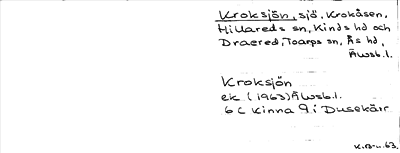 Kroksjön, sjö, Krokåsen,
Hillareds sn, Kinds hd och
Dracred, Toarps sn, Ås hd,
Älvsb.l.
Kroksjön
ek (1963) Älvsb.l.
6 C Kinna 9 i Dusekärr
K.B-n.63.